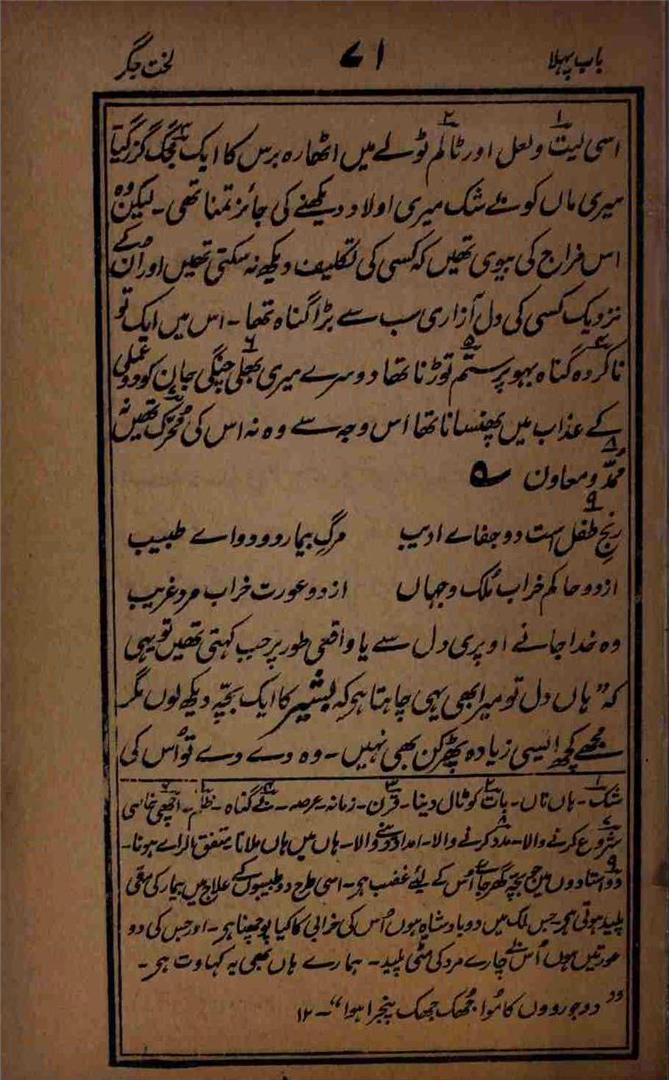 باب پہلا
۷۱
لخت جگر
اسی لیت ولعل اور ٹالم ٹولے میں اٹھارہ برس کا ایک جُگ گزر گیا
میری ماں کو بے شک میری اولاد دیکھنے کی جائز تمنا تھی۔ لیکن وہ
اس مزاج کی بیوی تھیں کہ کسی کی تکلیف دیکھ نہ سکتی تھیں اور اُن کے
نزدیک کسی کی دل آزاری سب سے بڑا گناہ تھا۔ اس میں ایک تو
ناکردہ گناہ بہو پر ستم توڑنا تھا دوسرے میری بھلی چنگی جان کو دو عملی
کے عذاب میں پھنسانا تھا اس وجہ سے وہ نہ اس کی محرّک تھیں نہ
مُمدّ و معاون ؎
رنج طفل است دو جفاے ادیب مرگِ بیمار دو دواے طبیب
از دو حاکم خراب مُلک و جہاں از دو عورت خراب مرد غریب
وہ خدا جانے اوپری دل سے یا واقعی طور پر جب کہتی تھیں تو یہی
کہ ”ہاں دل تو میرا بھی یہی چاہتا ہے کہ بشیر کا ایک بچّہ دیکھ لوں مگر
مجھے کچھ ایسی زیادہ پھڑکن بھی نہیں۔ وہ دے دے تو اُس کی
۱ شک۔ ہاں ناں۔ ۲ بات کو ٹال دینا۔ ۳ قرن۔ زمانہ۔ عرصہ۔ ۴ بے گناہ۔ ۵ ظلم۔ ۶ اچھی خاصی
۷ شروع کرنے والا۔ ۸ مدد کرنے والا۔ امداد دینے والا۔ ہاں میں ہاں ملانا۔ متفق الراے ہونا۔
۹ دو استادوں میں جو بچّہ گھر جاے اُس کے لیئے غضب ہے۔ اسی طرح دو طبیبوں کے علاج میں بیمار کی مٹی
پلید ہوتی ہے جس ملک میں دو بادشاہ ہوں اُس کی خرابی کا کیا پوچھنا ہے۔ اور جس کی دو
عورتیں ہوں اُس بے چارے مرد کی مٹی پلید۔ ہمارے ہاں بھی یہ کہاوت ہے۔
”دو جورووں کا مُوا جُھک جھک پنجرا ہوا“۔ ۱۲